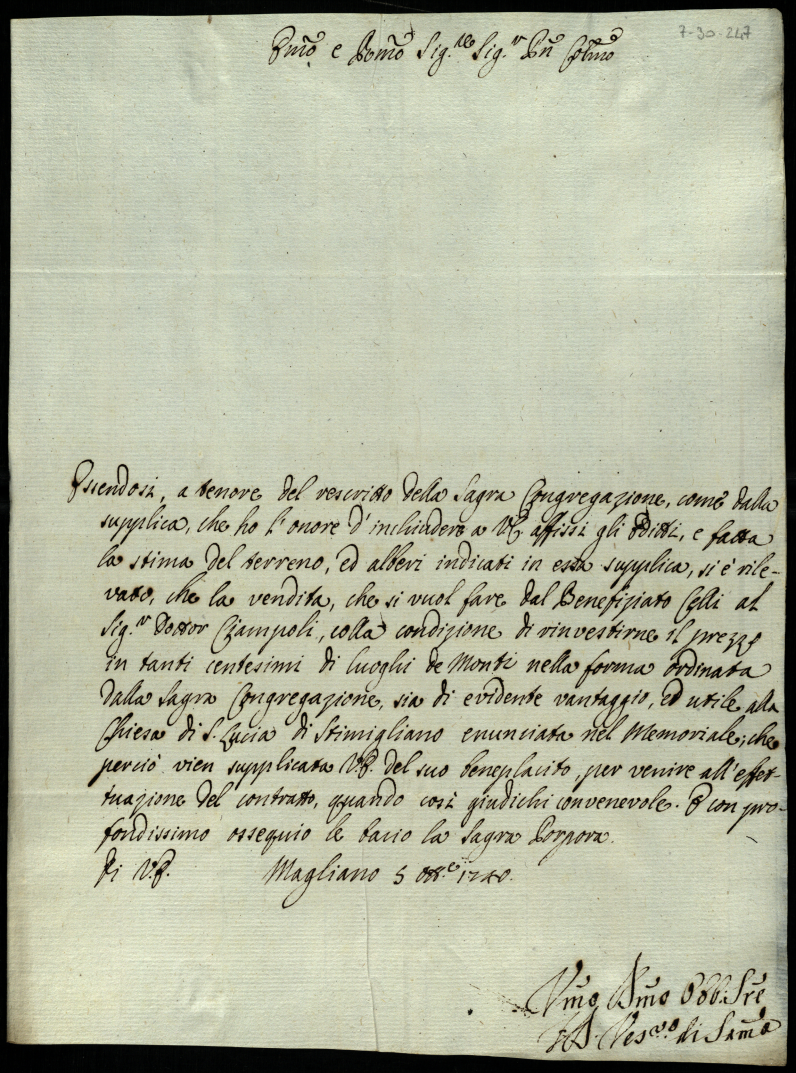 7-30-247
Emõ e Rmõ Sig.re Sig.r Pñ Colmõ
Essendosi, a tenore del rescritto della Sagra Congregazione, come dalla
supplica, che ho l'onore d'inchiudere a V.E. affissi gli Editti, e fatta
la stima del terreno, ed alberi indicati in essa supplica, si è rile-
vato, che la vendita, che si vuol fare dal Benefiziato Celli al
Sig.r Dottor Ciampoli, colla condizione di rinvestirne il prezzo
in tanti centesimi di luoghi de Monti nella forma ordinata
dalla Sagra Congregazione, sia di evidente vantaggio, ed utile alla
Chiesa di S. Lucia di Stimigliano enunciata nel Memoriale; che
perciò vien supplicata V.E. del suo beneplacito, per venire all'effet-
tuazione del contratto, quando così giudichi convenevole. E con pro-
fondissimo ossequio le bacio la Sagra Porpora.
Di V.E. Magliano 5 Ott.e 1740.
Vmõ Dmõ Obb: Sre
Ves.vo di Sab